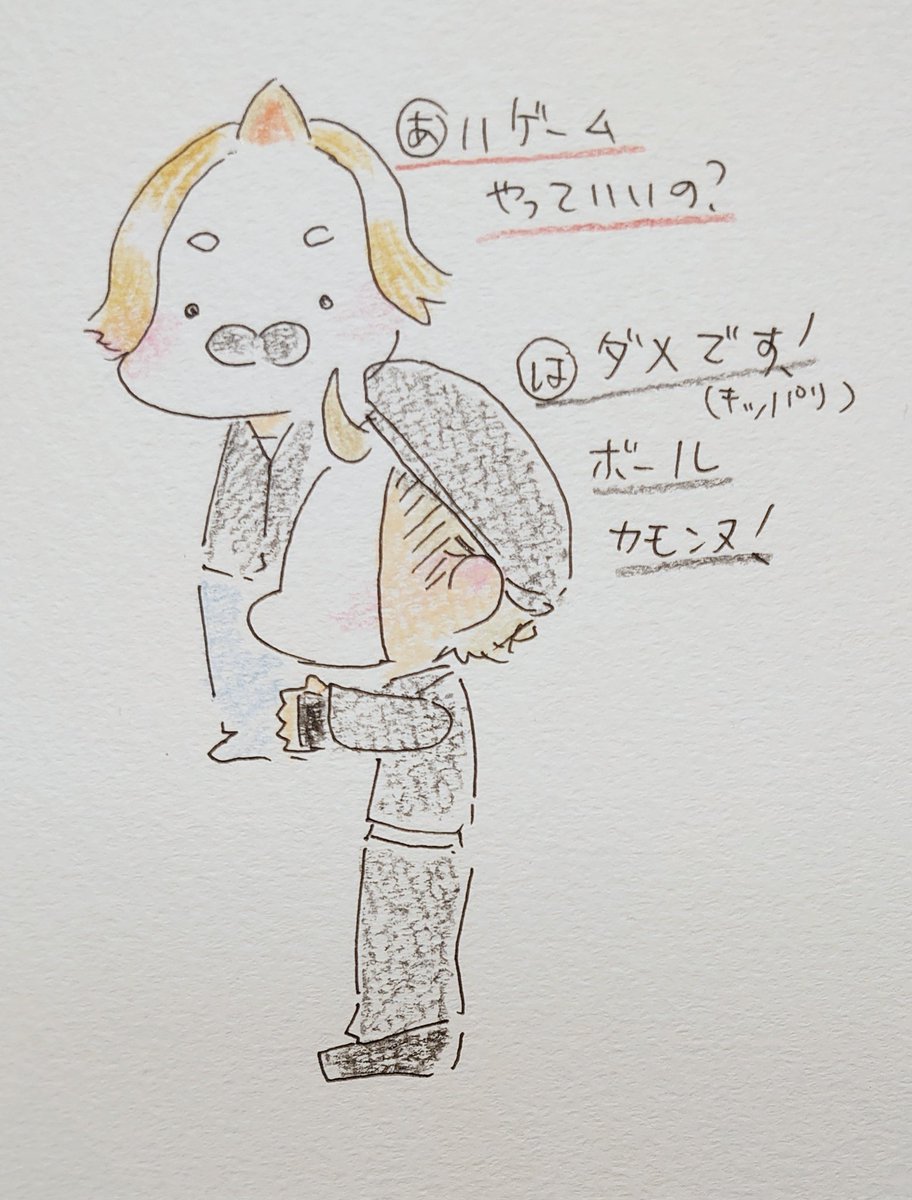 あ いいゲーム
やっていいの?
は ダメです!
(キッパリ)
ボール
カモンヌ!